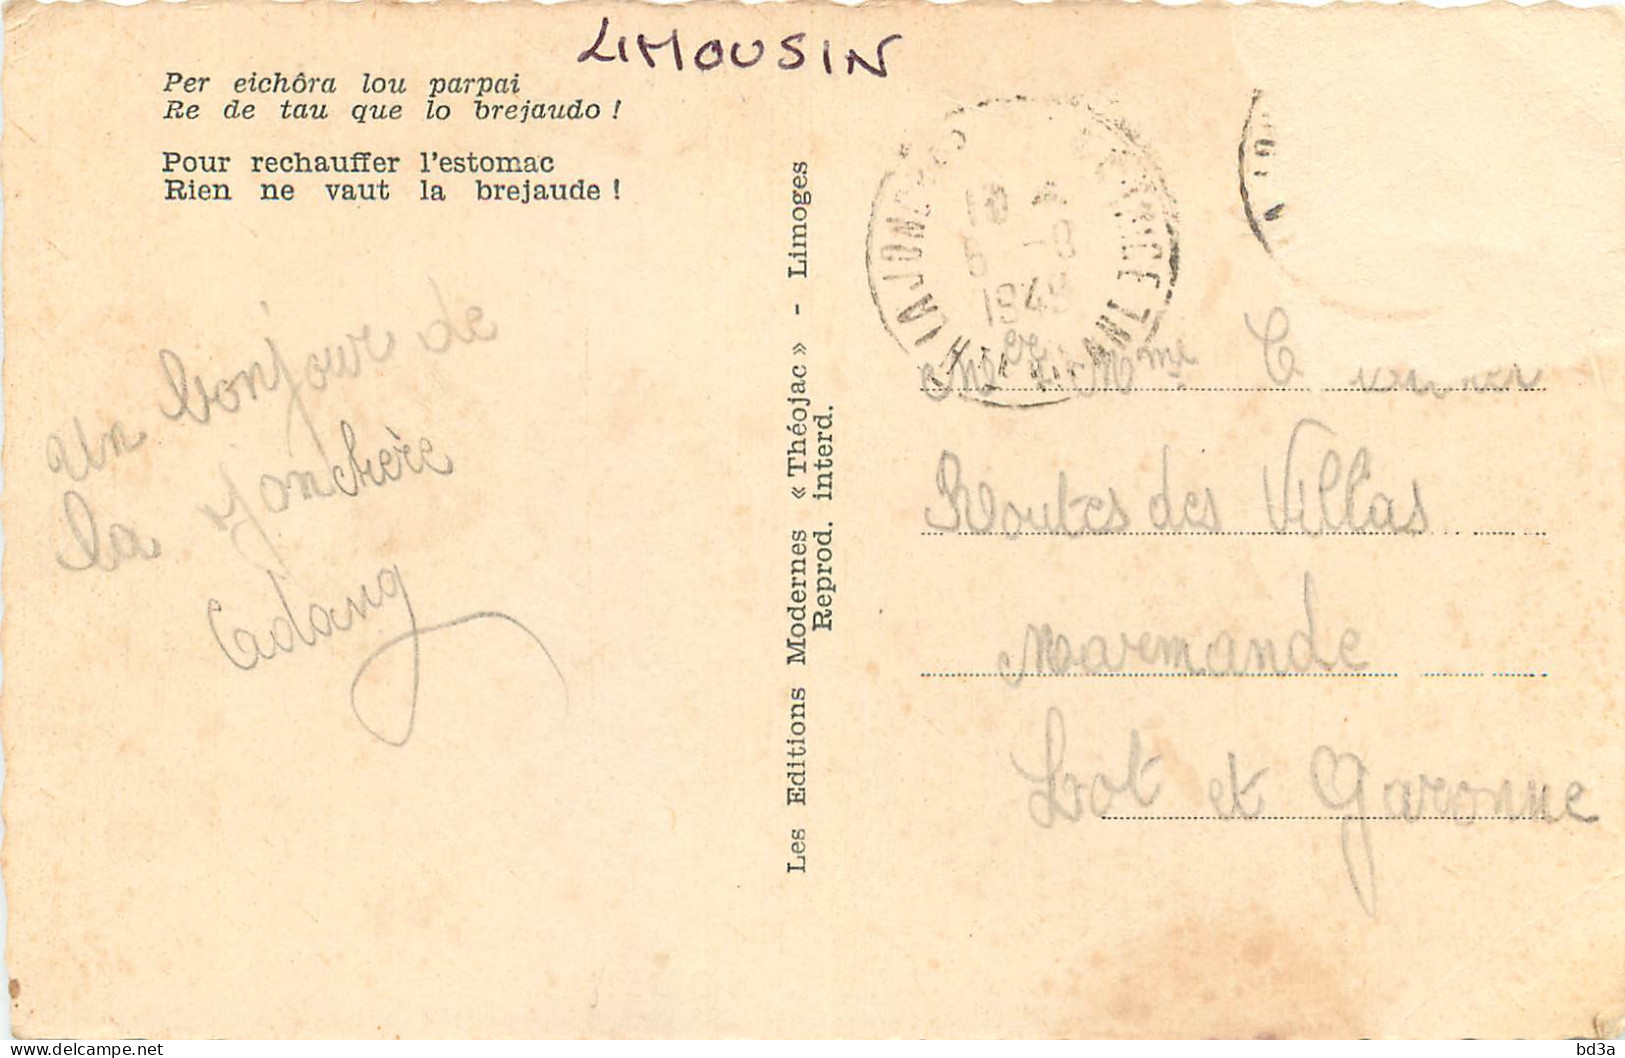 LIMOUSIN
Per eichôra lou parpai
Re de tau que lo brejaudo !
Pour rechauffer l'estomac
Rien ne vaut la brejaude !
Un bonjour de
la jonchère
Les Editions Modernes « Théojac » - Limoges
Reprod. interd.
1949
Mme
Routes des Villas
Marmande
Lot et Garonne
bd3a